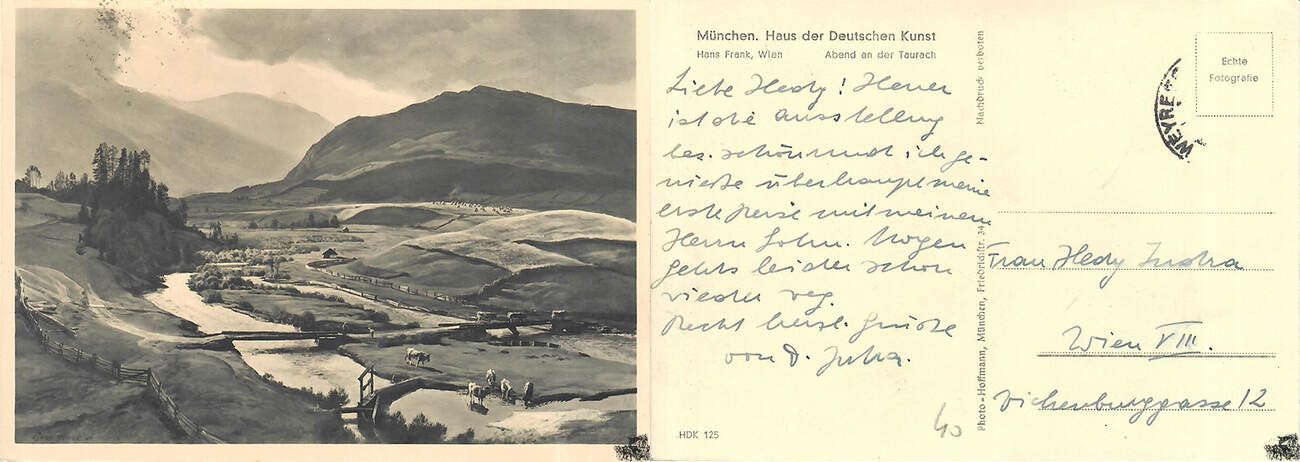 München. Haus der Deutschen Kunst
Hans Frank, Wien Abend an der Taurach
Liebe Hedy! Heuer
ist die Ausstellung
bes. schön und ich ge-
nieße überhaupt meine
erste Reise mit meinem
Herrn Sohn. Morgen
gehts leider schon
wieder weg.
Recht herzl. Grüße
von D.
HDK 125
40
Photo-Hoffmann, München, Friedrichstr. 34
Nachdruck verboten
Echte
Fotografie
WEYRE
Frau Hedy Indra
Wien VIII.
12